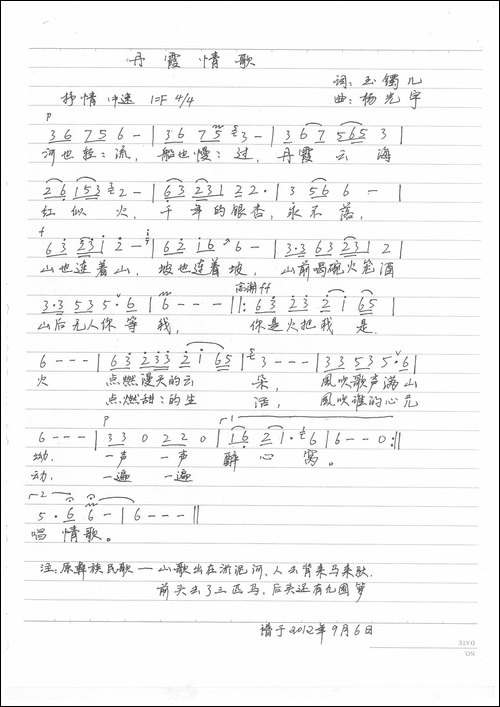 丹霞情歌
词：玉镯儿
抒情 中速 1=F 4/4 曲：杨光宇
p
3 6 7 5 6 - | 3 6 7 5 3 - | 3 6 7 5 6 5 3 |
河也轻：流， 船也慢：过， 丹霞云海
2 6 1 5 3 2 - | 6 3 2 3 1 2 2 · | 3 5 6 6 - |
红似火， 千年的银杏，永不落，
f
6 3 2 3 1 2 - | 6 2 1 6 6 - | 3 · 3 6 3 2 3 1 2 |
山也连着山， 坡也连着坡， 山前喝碗火笼酒
高潮 ff
3 · 3 5 3 5 · 6 | 6 - - - ‖: 6 3 2 3 2 1 6 5 |
山后无人你等我， 你是火把我是
6 - - - | 6 3 2 3 3 2 1 6 5 | 3 - - - | 3 3 5 3 5 · 6 |
火 点燃漫天的云朵， 風吹歌声满山
点燃甜：的生活， 風吹谁的心儿
p 1
6 - - - | 3 3 0 2 2 0 | 1 6 2 1 · 6 | 6 - - 0 :‖
坳. 一声 一声 醉心窝。
动. 一遍 一遍
2
5 · 6 6 - | 6 - - - ‖
唱情歌。
注：原彝族民歌 — 山歌出在流泥河，人云背来马来驮.
前头去了三匹马，后头还有九囤箩
谱于2012年9月6日
DATE
NO.